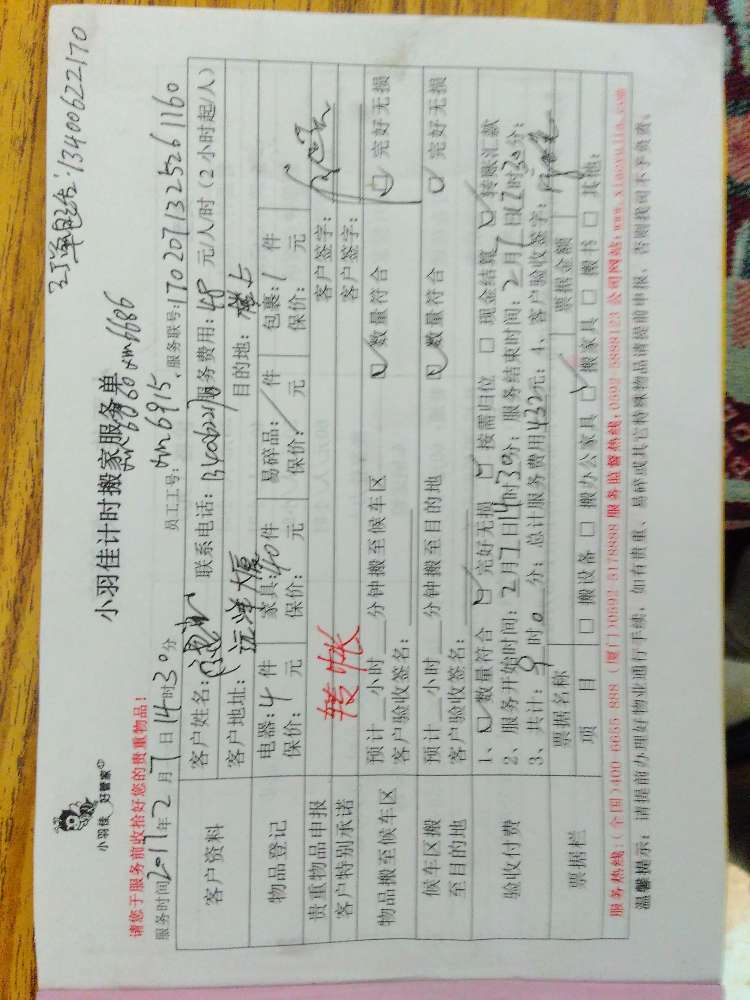 订单电话:13400622170
小羽佳
好管家
小羽佳计时搬家服务单
xm6686
请您于服务前收拾好您的贵重物品!
服务时间2017年2月7日14时30分 员工工号: xm6915. 服务联号:170207132526 1160
客户资料
客户姓名: 联系电话: 服务费用:48元/人/时(2小时起/人)
客户地址:远洋大厦 目的地:楼上
物品登记
电器:4件 家具:40件 易碎品:/件 包裹:/件
保价: 元 保价: 元 保价: 元 保价: 元
贵重物品申报 客户签字:
客户特别承诺 转帐 客户签字:
物品搬至候车区
预计__小时__分钟搬至候车区 数量符合 完好无损
客户验收签名:
候车区搬至目的地
预计__小时__分钟搬至目的地 数量符合 完好无损
客户验收签名:
验收付费
1、数量符合 完好无损 按需归位 现金结算 转账汇款
2、服务开始时间:2月7日14时30分; 服务结束时间:2月7日17时30分;
3、共计:9时0分; 总计服务费用432元; 4、客户验收签字:
票据栏
票据名称 票据金额
项目 搬设备 搬办公家具 搬家具 搬书 其他:
服务热线:(全国)400 6655 888 (厦门)0592 5178888 服务监督热线:0592 5888123 公司网站:www.xiaoyujia.com
温馨提示: 请提前办理好物业通行手续, 如有贵重、易碎或其它特殊物品请提前申报, 否则我司不予负责。